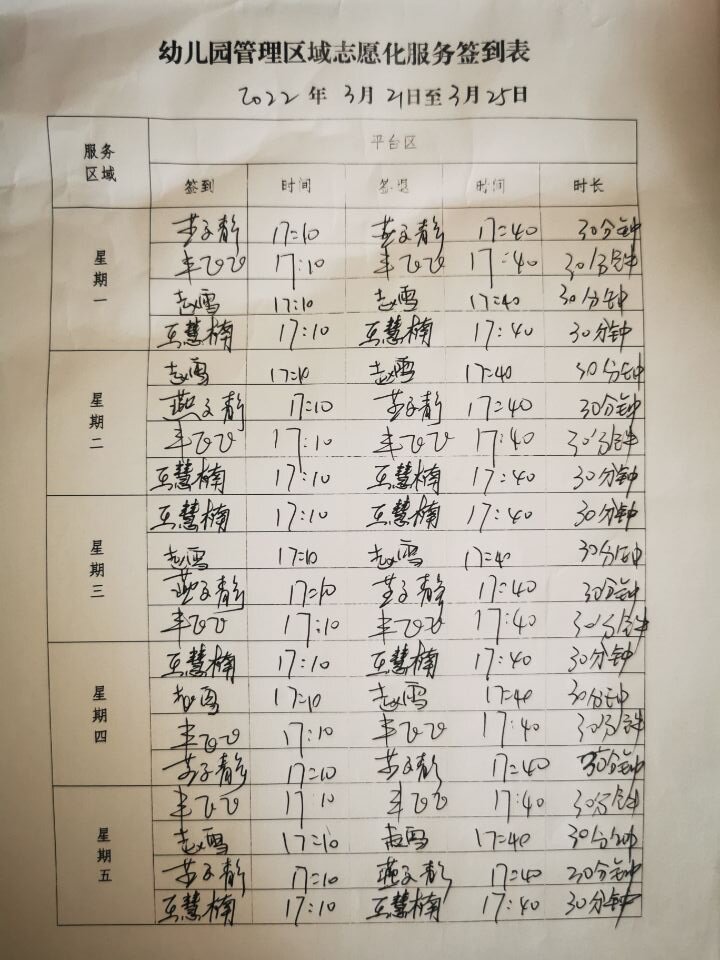 幼儿园管理区域志愿化服务签到表
2022年 3月21日至3月25日
服务区域 平台区
签到 时间 签退 时间 时长
星期一
燕文静 17:10 燕文静 17:40 30分钟
17:10 17:40 30分钟
赵雪 17:10 赵雪 17:40 30分钟
王慧楠 17:10 王慧楠 17:40 30分钟
星期二
赵雪 17:10 赵雪 17:40 30分钟
燕文静 17:10 燕文静 17:40 30分钟
17:10 17:40 30分钟
王慧楠 17:10 王慧楠 17:40 30分钟
星期三
王慧楠 17:10 王慧楠 17:40 30分钟
赵雪 17:10 赵雪 17:40 30分钟
燕文静 17:10 燕文静 17:40 30分钟
17:10 17:40 30分钟
星期四
王慧楠 17:10 王慧楠 17:40 30分钟
赵雪 17:10 赵雪 17:40 30分钟
17:10 17:40 30分钟
燕文静 17:10 燕文静 17:40 30分钟
星期五
17:10 17:40 30分钟
赵雪 17:10 赵雪 17:40 30分钟
燕文静 17:10 燕文静 17:40 30分钟
王慧楠 17:10 王慧楠 17:40 30分钟